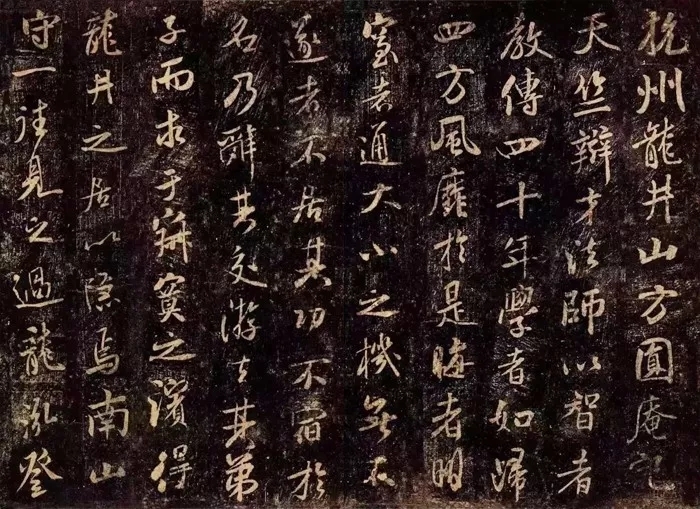 杭州龍井山方圓庵記
天竺辯才法師以智者
教傳四十年學者如歸
四方風靡於是晦者明
窒者通大小之機無不
遂者不居其功不宿於
名乃辭其交游去其弟
子而求于寂寞之濱得
龍井之居以隱焉南山
守一往見之過龍泓登